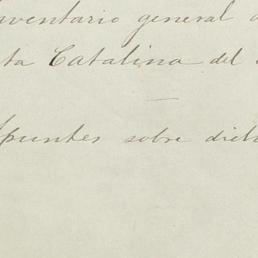 nventario general d
ta Catalina del
puntes sobre dich